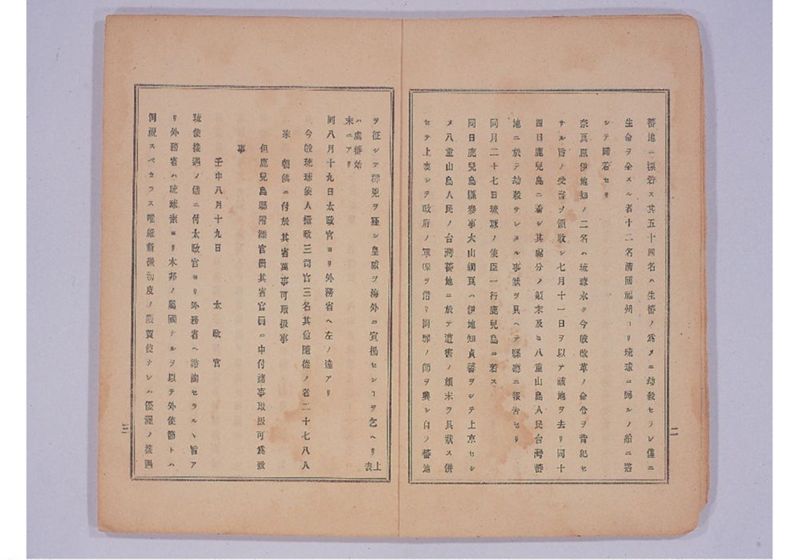 蕃地ニ漂着ス其五十四名ハ生蕃ノ為メニ劫殺セラレ僅ニ
生命ヲ全スル者十二名清國福州ヨリ琉球ニ帰ルノ船ニ搭
シテ歸着セリ
奈良原伊地知ノ二名ハ琉球永ク今般改革ノ命令ヲ背犯セ
サル旨ノ受書ヲ領收シ七月十一日ヲ以テ該地ヲ去リ同十
四日鹿兒島ニ着シ其處分ノ顛末及ヒ八重山島人民台灣蕃
地ニ於テ劫殺サレタル事狀ヲ具ヘテ縣廳ニ報告セリ
同月二十七日琉球ノ使臣一行鹿兒島ニ着ス
同日鹿兒島縣參事大山綱良ハ伊地知貞馨ヲシテ上京セシ
メ八重山島人民ノ台灣蕃地ニ於テ遭害ノ顛末ヲ具狀ス併
セテ上表シテ政府ノ軍艦ヲ借リ問罪ノ師ヲ興シ自ラ蕃地
二
ヲ征シテ兇ヲ殲シ皇威ヲ海外ニ宣揚センコヲ乞ヘリ上表
ハ處蕃始末ニアリ
同八月十九日太政官ヨリ外務省ヘ左ノ達アリ
今般琉球使人攝政三司官三名其他隨從ノ者二十七八人
來朝候ニ付於其省萬事可取扱事
但鹿兒島縣附添官員其省官員ニ申付諸事取扱可爲致
事
壬申八月十九日 太政官
琉使接遇ノ儀ニ付太政官ヨリ外務省ヘ諮詢セラルヽ旨ア
リ外務省ハ琉球素ヨリ本邦ノ屬國ナルヲ以テ外使ト
同視スヘカラス維新初度ノ慶賀使ナレハ優渥ノ接遇
三